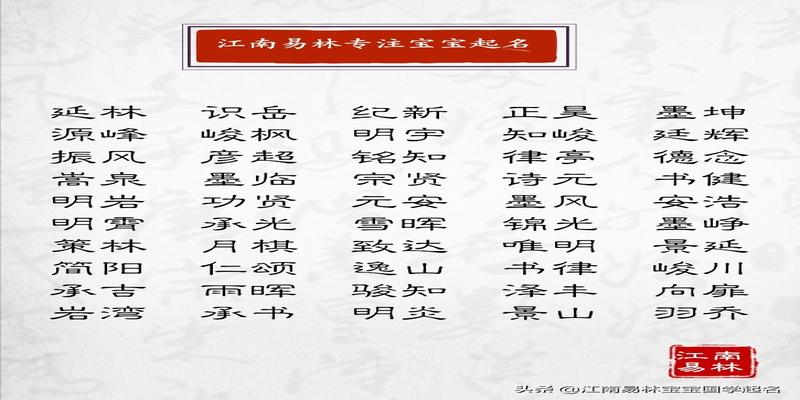 江南易林专注宝宝起名
延林 识岳 纪新 正昊 墨坤
源峰 峻枫 明宇 知峻 廷辉
振风 彦超 铭知 律亭 德念
嵩泉 墨临 宗贤 诗元 书健
明岩 功贤 元安 墨风 安浩
明霄 承光 雪晖 锦光 墨峥
策林 月棋 致达 唯明 景延
简阳 仁颂 逸山 书律 峻川
承吉 雨晖 骏知 泽丰 向扉
岩湾 承书 明炎 景山 羽乔
江南
易林
头条 @江南易林宝宝国学起名